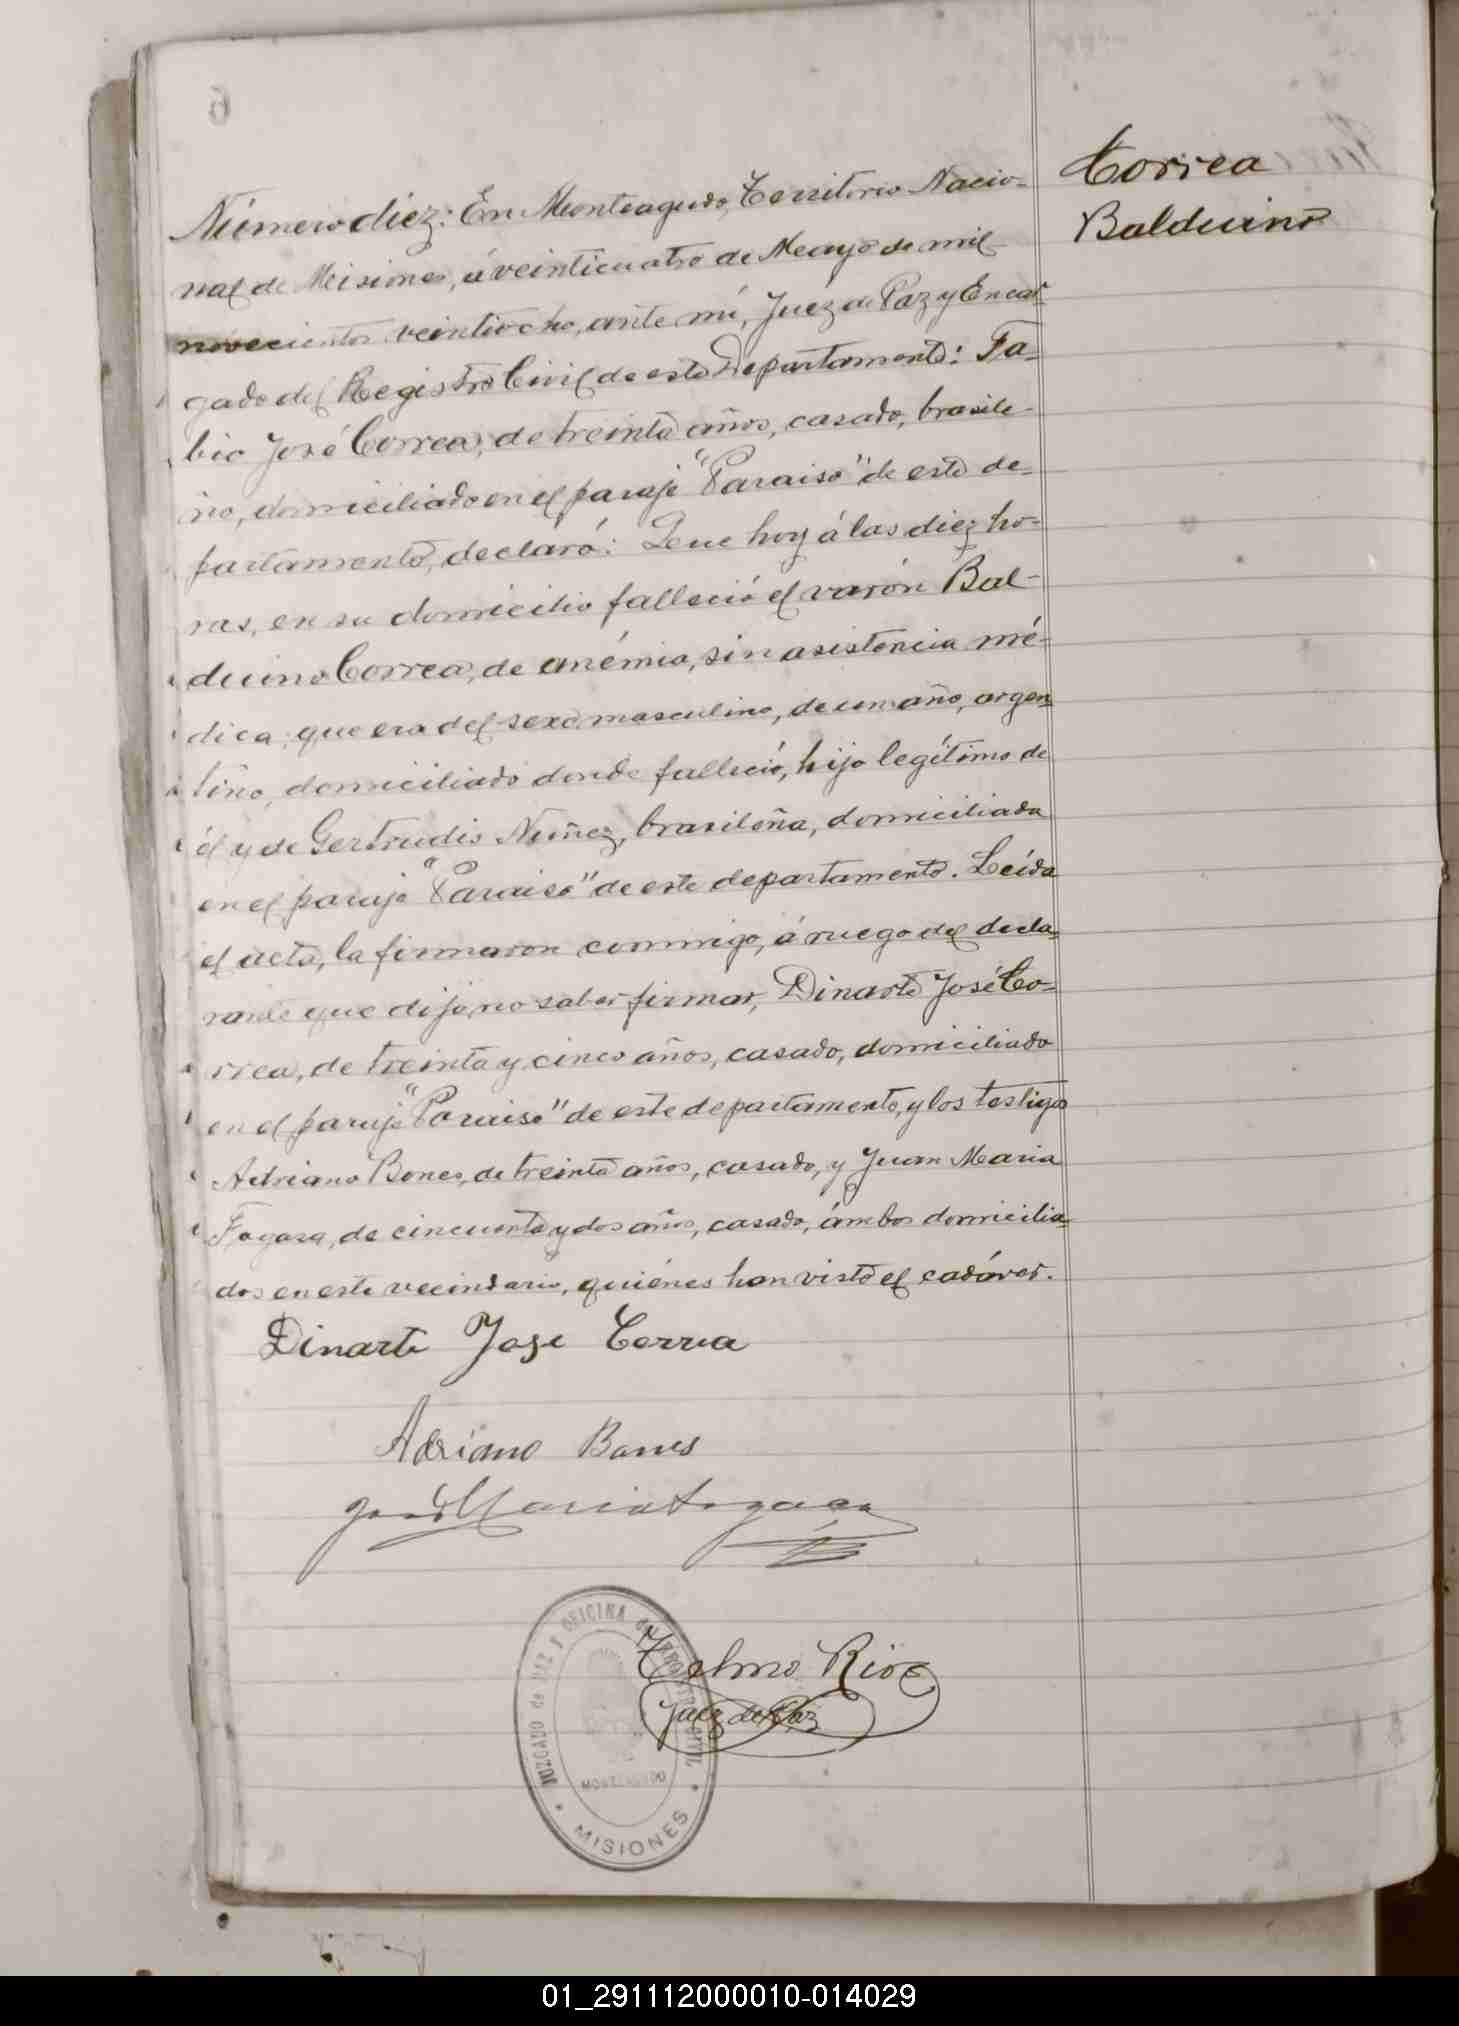 Correa
Balduino
Número diez: En Monteagudo, Territorio Nacio-
nal de Misiones, á veinticuatro de Mayo de mil
novecientos veintiocho, ante mí, Juez de Paz y Encar-
gado del Registro Civil de este Departamento: Fa-
bio José Correa, de treinta años, casado, brasile-
ño, domiciliado en el paraje "Paraiso" de este de-
partamento, declaró: Que hoy á las diez ho-
ras, en su domicilio falleció el varón Bal-
duino Correa, de anémia, sin asistencia mé-
dica, que era del sexo masculino, de un año, argen-
tino, domiciliado donde falleció, hijo legítimo de
él y de Gertrudis Nuñez, brasileña, domiciliada
en el paraje "Paraiso" de este departamento. Leída
el acta, la firmaron conmigo, á ruego del decla-
rante que dijo no saber firmar, Dinarte José Co-
rrea, de treinta y cinco años, casado, domiciliado
en el paraje "Paraiso" de este departamento, y los testigos
Adriano Bones, de treinta años, casado, y Juan Maria
Fogasa, de cincuenta y dos años, casado, ámbos domicilia-
dos en este vecindario, quiénes han visto el cadáver.
Dinarte Jose Correa
Adriano Bones
Maria Fogaça
Telmo Rios
Juez de Paz
JUZGADO de PAZ Y OFICINA de REGISTRO CIVIL
MONTEAGUDO
MISIONES
01_291112000010-014029